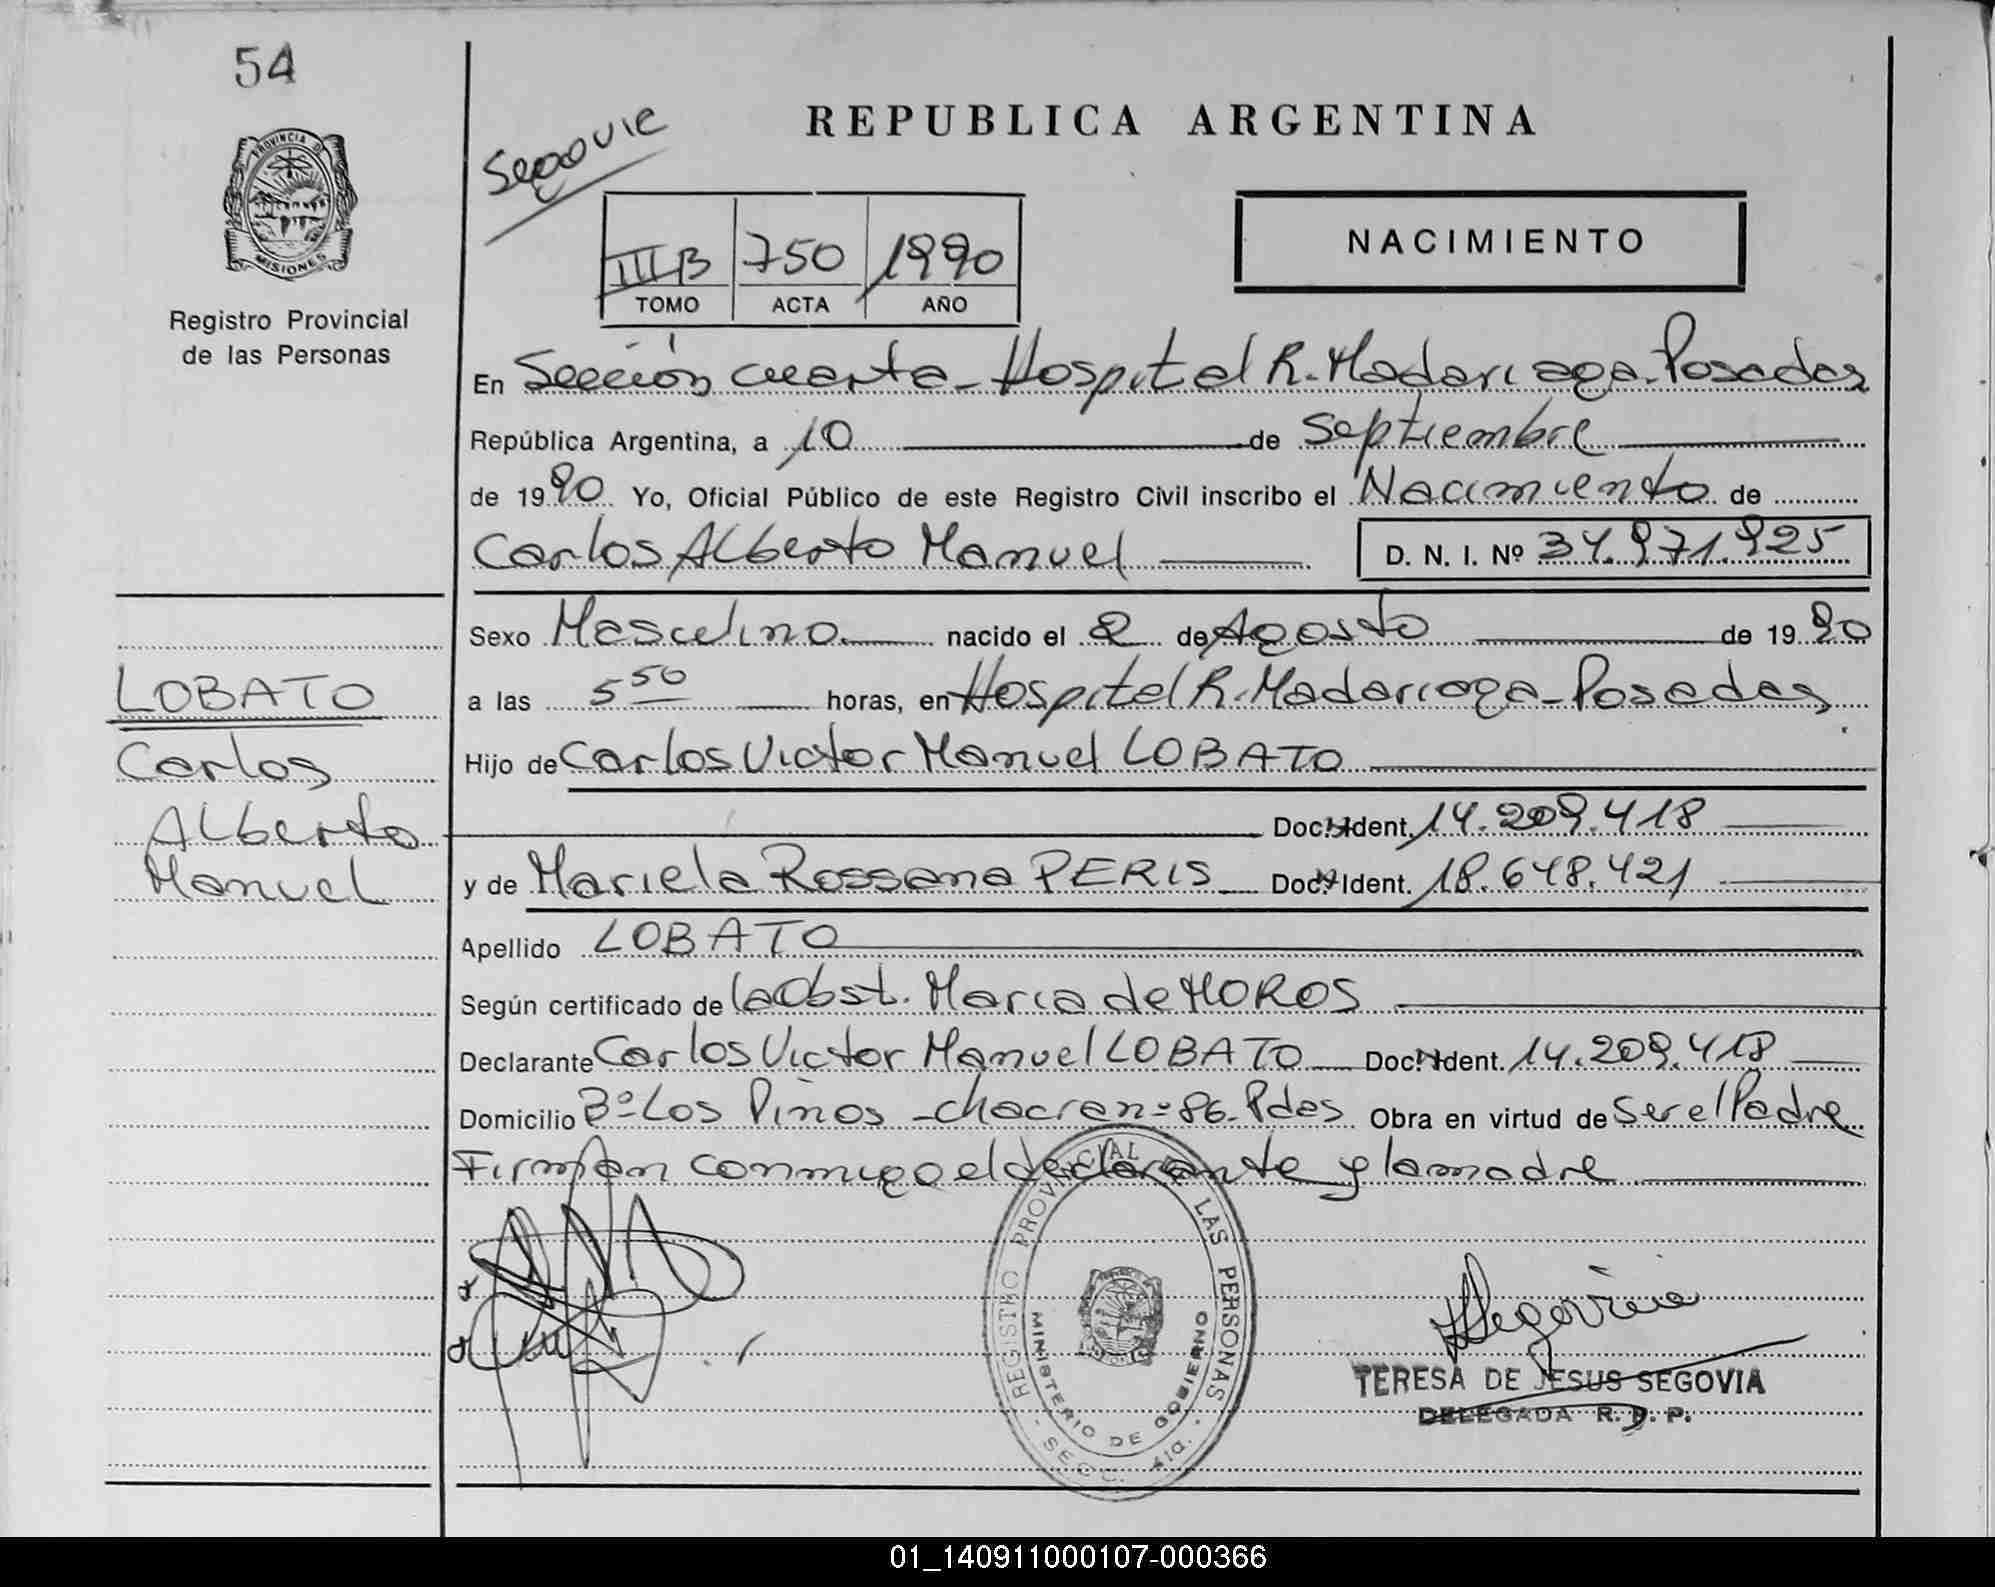 54
PROVINCIA D
MISIONES
Registro Provincial
de las Personas
Segovia
REPUBLICA ARGENTINA
III B 750 1990
TOMO ACTA AÑO
NACIMIENTO
En Sección cuarta - Hospital R. Madariaga - Posadas
República Argentina, a 10 de Septiembre
de 1990 Yo, Oficial Público de este Registro Civil inscribo el Nacimiento de
Carlos Alberto Manuel D. N. I. Nº 34.971.925
Sexo Masculino nacido el 2 de Agosto de 1990
a las 5 50 horas, en Hospital R. Madariaga - Posadas
Hijo de Carlos Victor Manuel LOBATO
Doc. Ident. 14.209.418
y de Mariela Rossana PERIS Doc. Ident. 18.648.421
Apellido LOBATO
Según certificado de la Obst. Maria de MOROS
Declarante Carlos Victor Manuel LOBATO Doc. Ident. 14.209.418
Domicilio Bº Los Pinos - chacra nº 86 - Pdas Obra en virtud de ser el Padre
Firman conmigo el declarante y la madre
LOBATO
Carlos
Alberto
Manuel
REGISTRO PROVINCIAL DE LAS PERSONAS
MINISTERIO DE GOBIERNO
SECC. 4ta.
Segovia
TERESA DE JESUS SEGOVIA
DELEGADA R. P. P.
01_140911000107-000366